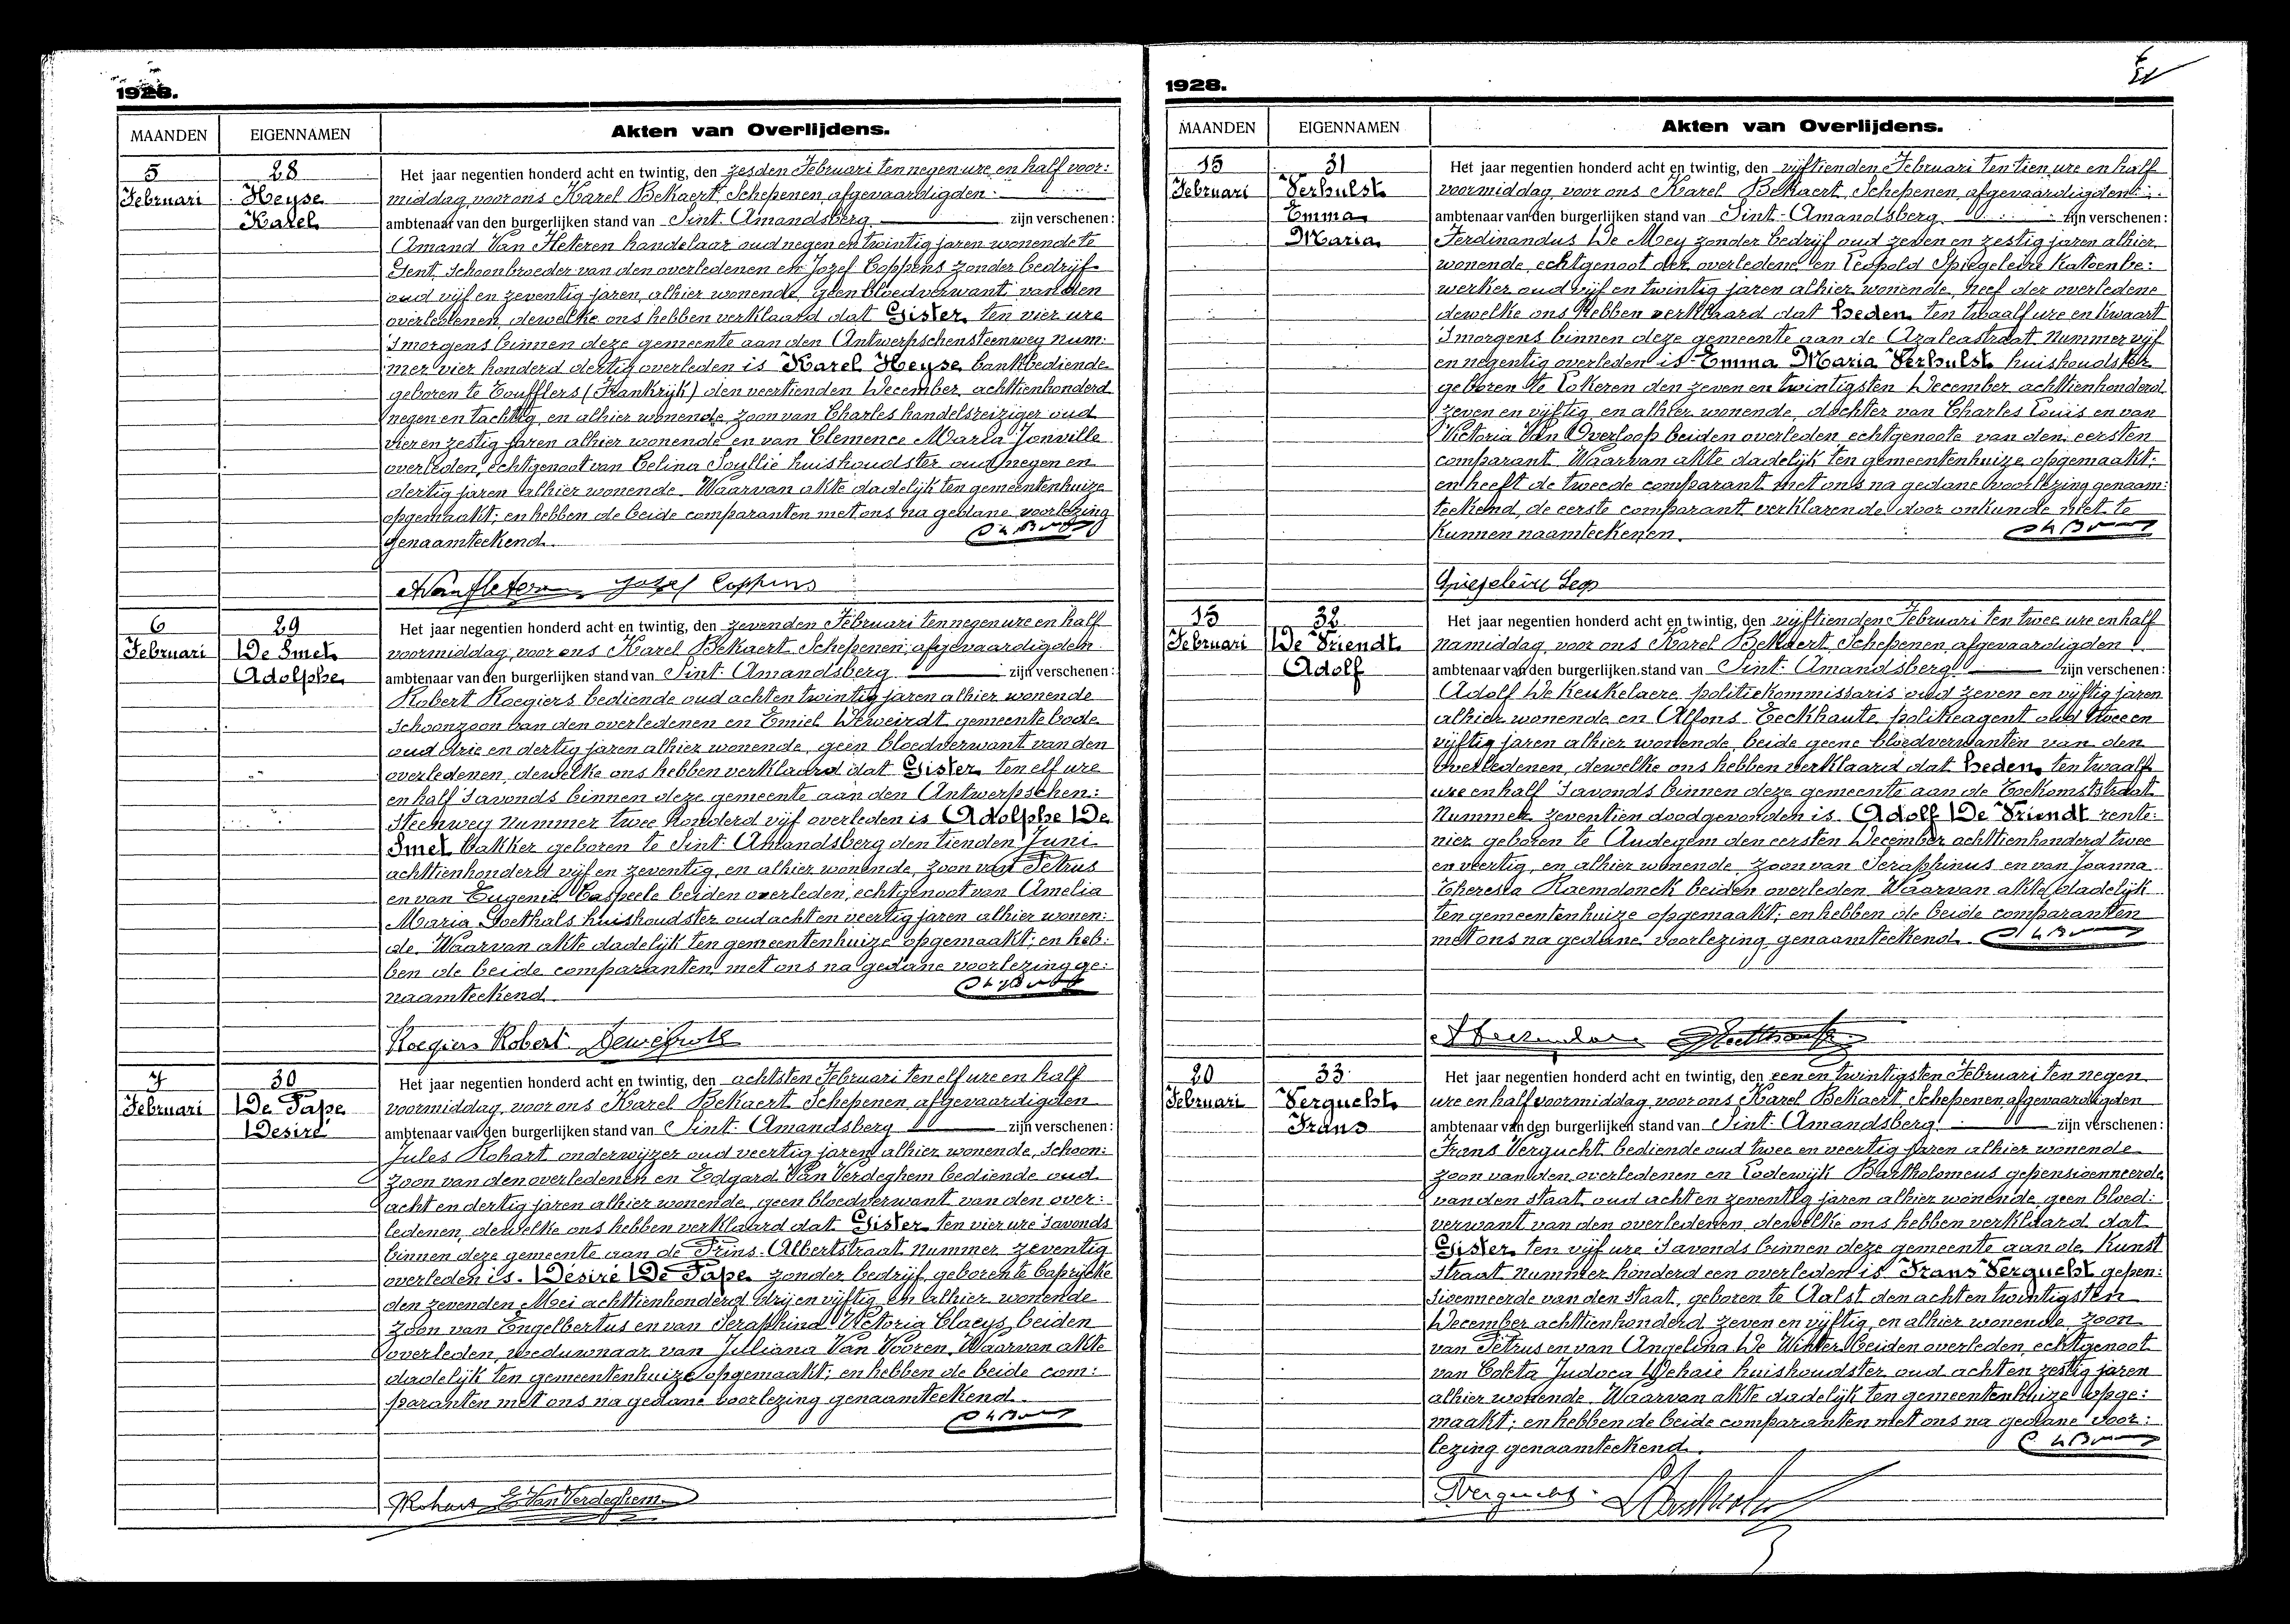 1928.
MAANDEN EIGENNAMEN Akten van Overlijdens.
5 28 Het jaar negentien honderd acht en twintig, den zesden Februari ten negen ure en half voor:
Februari Heyse middag voor ons Karel Bekaert Schepenen, afgevaardigden
Karel ambtenaar van den burgerlijken stand van Sint-Amandsberg zijn verschenen:
Amand Van Heteren handelaar oud negen en twintig jaren wonende te
Gent, Schoonbroeder van den overledenen en Jozef Coppens zonder bedrijf
oud vijf en zeventig jaren, alhier wonende, geen bloedverwant van den
overledenen, dewelke ons hebben verklaard dat Gister ten vier ure
'smorgens binnen deze gemeente aan den Antwerpschensteenweg Num:
mer vier honderd dertig overleden is Karel Heyse bankbediende
geboren te Toufflers (Frankrijk) den veertienden December achttienhonderd
negen en tachtig, en alhier wonende, zoon van Charles handelsreiziger oud
vier en zestig jaren alhier wonende en van Clemence Maria Jonville
overleden, echtgenoot van Celina Soyllie huishoudster oud negen en
dertig jaren alhier wonende. Waarvan akte dadelijk ten gemeentenhuize
opgemaakt; en hebben de beide comparanten met ons na gedane voorlezing
genaamteekend.
Jozef Coppens
6 29 Het jaar negentien honderd acht en twintig, den zevenden Februari ten negen ure en half
Februari De Smet voormiddag voor ons Karel Bekaert Schepenen, afgevaardigden
Adolphe ambtenaar van den burgerlijken stand van Sint-Amandsberg zijn verschenen:
Robert Roegiers bediende oud acht en twintig jaren alhier wonende
Schoonzoon van den overledenen en Emiel Deweirdt gemeentebode
oud drie en dertig jaren alhier wonende, geen bloedverwant van den
overledenen, dewelke ons hebben verklaard dat Gister ten elf ure
en half 'savonds binnen deze gemeente aan den Antwerpschen:
Steenweg Nummer twee honderd vijf overleden is Adolphe De
Smet bakker geboren te Sint-Amandsberg den tienden Juni
achttienhonderd vijf en zeventig, en alhier wonende, zoon van Petrus
en van Eugenie Caspeele beiden overleden, echtgenoot van Amelia
Maria Goethals huishoudster oud acht en veertig jaren alhier wonen:
de. Waarvan akte dadelijk ten gemeentenhuize opgemaakt; en heb:
ben de beide comparanten met ons na gedane voorlezing ge:
naamteekend.
Roegiers Robert
7 30 Het jaar negentien honderd acht en twintig, den achtsten Februari ten elf ure en half
Februari De Pape voormiddag voor ons Karel Bekaert Schepenen, afgevaardigden
Desiré ambtenaar van den burgerlijken stand van Sint-Amandsberg zijn verschenen:
Jules Rohart onderwijzer oud veertig jaren alhier wonende, Schoon:
zoon van den overledenen en Edgard Van Verdeghem bediende oud
acht en dertig jaren alhier wonende, geen bloedverwant van den over:
ledenen, dewelke ons hebben verklaard dat Gister ten vier ure 'savonds
binnen deze gemeente aan de Prins-Albertstraat nummer zeventig
overleden is Désiré De Pape zonder bedrijf, geboren te Caprijcke
den zevenden Mei achttienhonderd drij en vijftig en alhier wonende
zoon van Engelbertus en van Seraphina Victoria Claeys, beiden
overleden, weduwnaar van Juliana Van Vooren. Waarvan akte
dadelijk ten gemeentenhuize opgemaakt; en hebben de beide com:
paranten met ons na gedane voorlezing genaamteekend.
Rohart E. Van Verdeghem
1928.
MAANDEN EIGENNAMEN Akten van Overlijdens.
15 31 Het jaar negentien honderd acht en twintig, den vijftienden Februari ten tien ure en half
Februari Verhulst voormiddag voor ons Karel Bekaert Schepenen, afgevaardigden
Emma ambtenaar van den burgerlijken stand van Sint-Amandsberg zijn verschenen:
Maria Ferdinandus De Mey zonder bedrijf oud zeven en zestig jaren alhier
wonende, echtgenoot der overledene en Leopold Spiegeleire katoenbe:
werker oud vijf en twintig jaren alhier wonende, neef der overledene
dewelke ons hebben verklaard dat heden ten twaalf ure en kwaart
'smorgens binnen deze gemeente aan de Azaleastraat Nummer vijf
en negentig overleden is Emma Maria Verhulst huishoudster
geboren te Lokeren den zeven en twintigsten December achttienhonderd
zeven en vijftig en alhier wonende, dochter van Charles Louis en van
Victoria Van Overloop beiden overleden, echtgenoote van den eersten
comparant. Waarvan akte dadelijk ten gemeentenhuize opgemaakt;
en heeft de tweede comparant met ons na gedane voorlezing genaam:
teekend, de eerste comparant verklarende door onkunde niet te
kunnen naamteekenen.
Spiegeleire Leop
15 32 Het jaar negentien honderd acht en twintig, den vijftienden Februari ten twee ure en half
Februari De Vriendt namiddag voor ons Karel Bekaert Schepenen, afgevaardigden
Adolf ambtenaar van den burgerlijken stand van Sint-Amandsberg zijn verschenen:
Adolf De Keukelaere politiekommissaris oud zeven en vijftig jaren
alhier wonende en Alfons Eeckhaute politieagent oud twee en
vijftig jaren alhier wonende, beide geene bloedverwanten van den
overledenen, dewelke ons hebben verklaard dat heden ten twaalf
ure en half 'savonds binnen deze gemeente aan de Toekomststraat
Nummer zeventien doodgevonden is Adolf De Vriendt rente:
nier, geboren te Audegem den eersten December achttienhonderd twee
en veertig, en alhier wonende, zoon van Seraphinus en van Joanna
Theresia Raemdonck beiden overleden. Waarvan akte dadelijk
ten gemeentenhuize opgemaakt; en hebben de beide comparanten
met ons na gedane voorlezing genaamteekend.
20 33 Het jaar negentien honderd acht en twintig, den een en twintigsten Februari ten negen
Februari Vergucht ure en half voormiddag voor ons Karel Bekaert Schepenen, afgevaardigden
Frans ambtenaar van den burgerlijken stand van Sint-Amandsberg zijn verschenen:
Frans Vergucht bediende oud twee en veertig jaren alhier wonende
zoon van den overledenen en Lodewijk Bartholomeus gepensioenneerde
van den staat, oud acht en zeventig jaren alhier wonende, geen bloed:
verwant van den overledenen, dewelke ons hebben verklaard dat
Gister ten vijf ure 'savonds binnen deze gemeente aan de Kunst
straat nummer honderd een overleden is Frans Vergucht gepen:
sioenneerde van den staat, geboren te Aalst den acht en twintigsten
December achttienhonderd zeven en vijftig, en alhier wonende, zoon
van Petrus en van Angelina De Winter beiden overleden, echtgenoot
van Coleta Judoca Dehaie huishoudster oud acht en zestig jaren
alhier wonende. Waarvan akte dadelijk ten gemeentenhuize opge:
maakt; en hebben de beide comparanten met ons na gedane voor:
lezing genaamteekend.
Vergucht